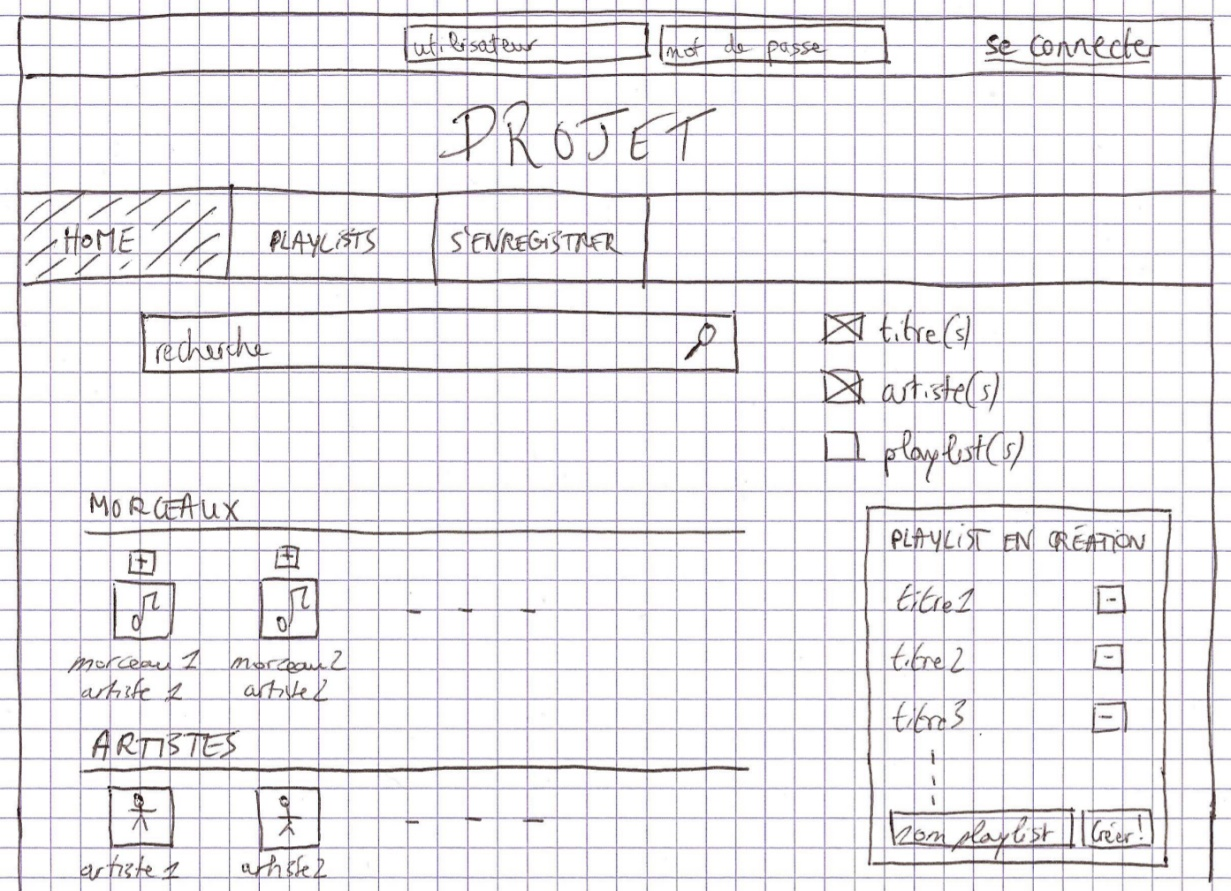 utilisateur mot de passe se connecter
PROJET
HOME PLAYLISTS S'ENREGISTRER
recherche
titre(s)
artiste(s)
playlist(s)
MORCEAUX
morceau 1 morceau 2
artiste 1 artiste 2
ARTISTES
artiste 1 artiste 2
PLAYLIST EN CRÉATION
titre 1
titre 2
titre 3
nom playlist Créer!